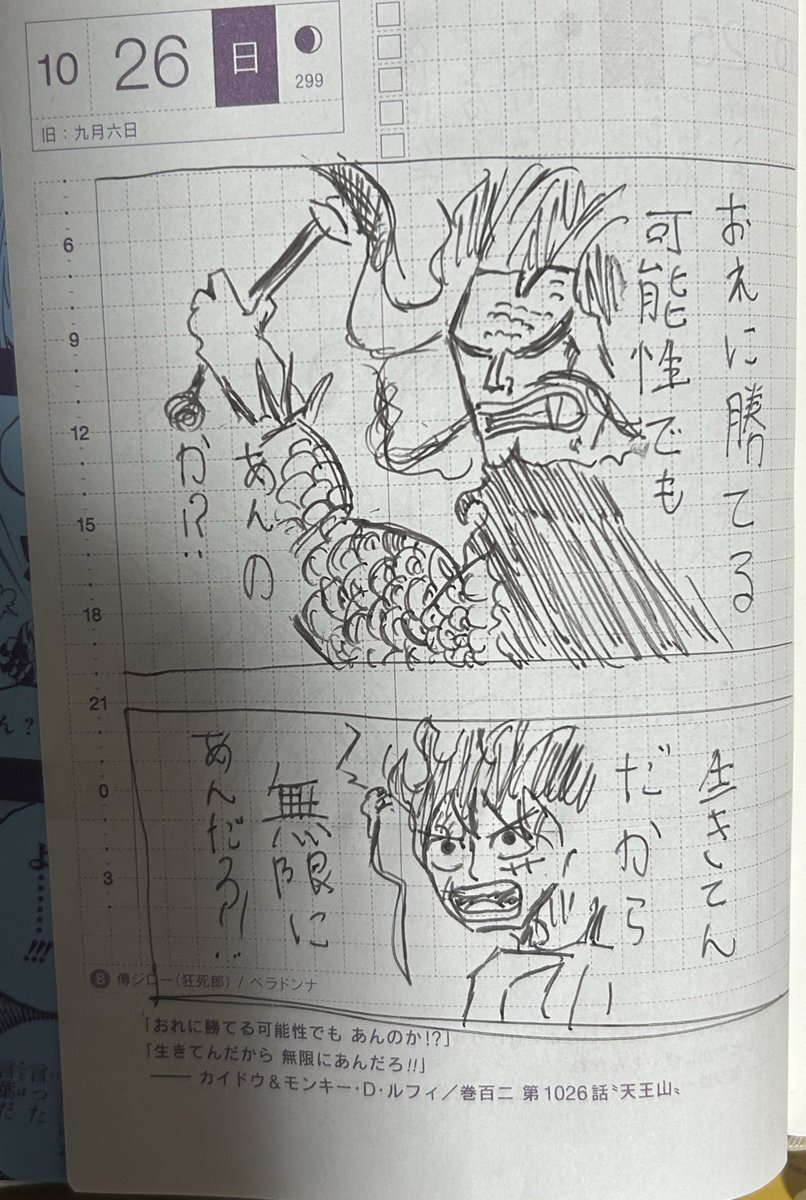 10 26 日
299
旧：九月六日
6
9
12
15
18
21
0
3
おれに勝てる
可能性でも
あんの
か!?
生きてん
だから
無限に
あんだろ!!
B 傳ジロー(狂死郎) / ベラドンナ
「おれに勝てる可能性でも あんのか!?」
「生きてんだから 無限にあんだろ!!」
―― カイドウ&モンキー・D・ルフィ／巻百二 第1026話〝天王山〟
ん？
よ………!!!
言った